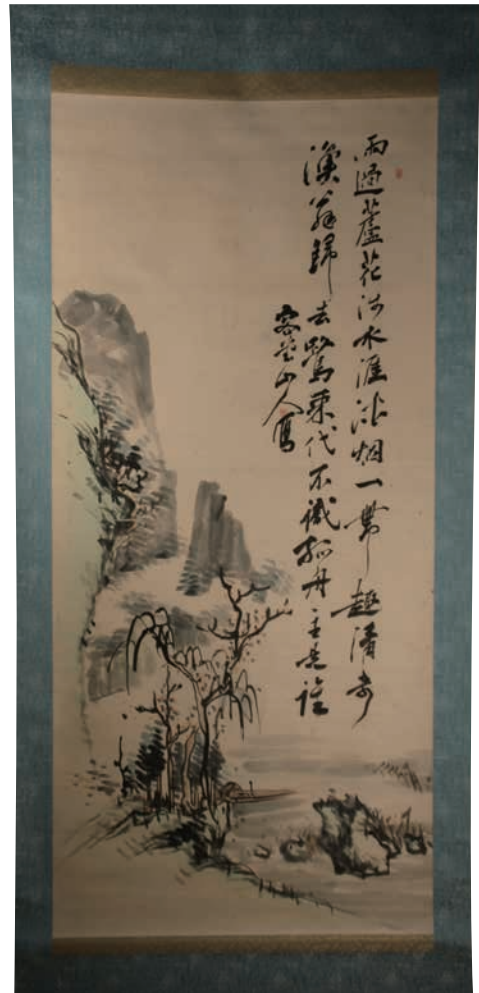 雨過蘆花水涯烟一帶趣清奇
漁翁歸去鷺乘代不識孤舟主是誰
山人寫